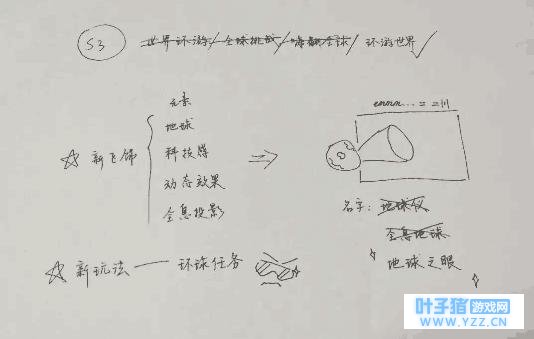 S3 世界环游/全球挑战/嗨翻全球/环游世界
元素
地球
☆ 新飞饰 科技感
动态效果
全息投影
emmm...= =|||
名字: 地球仪
全息地球
地球之眼
☆ 新玩法——环球任务
叶子猪游戏网
WWW.YZZ.CN